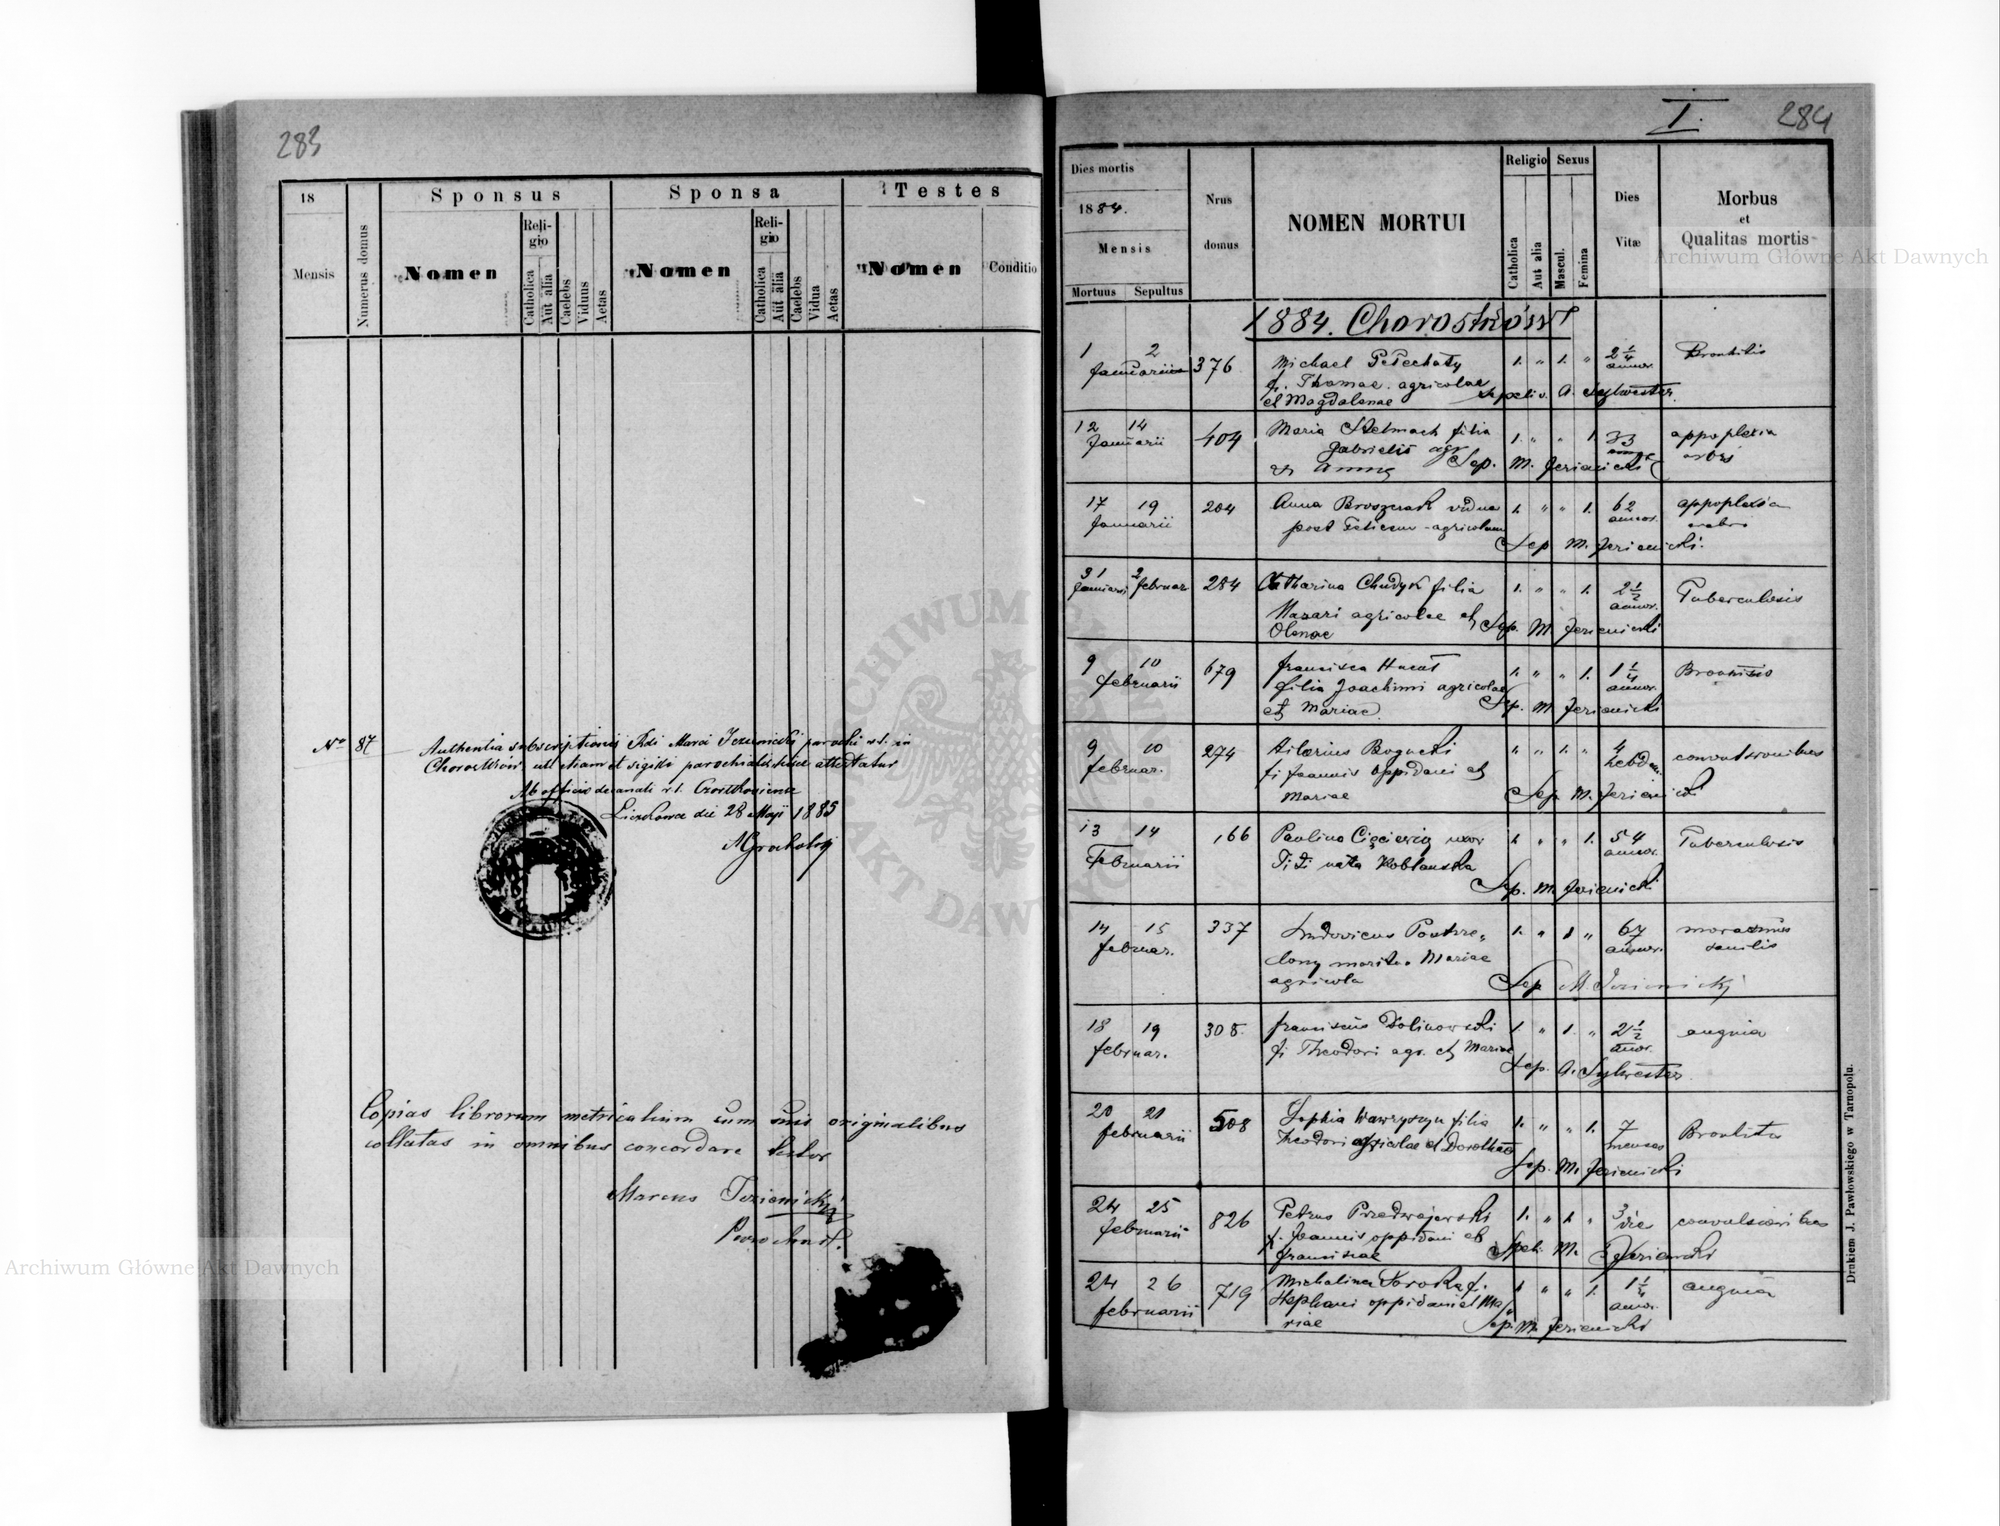 283
18
Mensis
Numerus domus
Sponsus
Nomen
Religio
Catholica
Aut alia
Caelebs
Viduus
Aetas
Sponsa
Nomen
Religio
Catholica
Aut alia
Caelebs
Vidua
Aetas
Testes
Nomen
Conditio
No 87 Authentia subscriptionis Rdi Marci Jezienicki parochi r. l. in
Chorostków uti etiam et sigilli parochialis hisce attestatur
Ab officio decanali r. l. Czortkoviensi
die 28 Maji 1885
Copias librorum metricalium cum suis originalibus
collatas in omnibus concordare testor
Marcus Jezienicki
Parochus.
I. 284
Dies mortis
1884.
Mensis
Mortuus Sepultus
Nrus
domus
NOMEN MORTUI
Religio
Catholica
Aut alia
Sexus
Mascul.
Femina
Dies
Vitæ
Morbus
et
Qualitas mortis
1884. Chorostków
1 2 Januarius 376 Michael Pełechaty 1. " 1. " 2 1/4 annor. Bronhitis
f. Thomae agricolae
et Magdalenae Sepeliv. A. Sylwester
12 14 Januarii 404 Maria Stelmach filia 1. " " 1. 33 appoplexia
Gabrielis agr.
et Annae Sep. M. Jezienicki
17 19 Januarii 204 Anna Broszczak vidua 1. " " 1. 62 annor. appoplexia
post Felicem agricolam
Sep. M. Jezienicki.
31 Januarii 2 februar 284 Catharina Chudyk filia 1. " " 1. 2 1/2 annor. Tuberculosis
Nazari agricolae et
Olenae Sep. M. Jezienicki
9 10 februarii 679 Francisca Hucał 1. " " 1. 1 1/4 annor. Bronhitis
filia Joachimi agricolae
et Mariae. Sep. M. Jezienicki
9 10 februar. 274 Hilarius Bogucki " " 1. " 4 hebdom. convulsionibus
fi Joannis oppidani et
Mariae Sep. M. Jezienicki
13 14 Februarii 166 Paulina Cięciewicz uxor 1. " " 1. 54 annor. Tuberculosis
Titi nata Kobłanska
Sep. M. Jezienicki
14 15 februar. 337 Ludovicus Pastuze„ 1. " 1 " 67 annor. marasmus senilis
lony maritus Mariae
agricola Sep. M. Jezienicki
18 19 februar. 308. Franciscus Dolinowski 1 " 1. " 2 1/2 annor. angina
fi Theodori agr. et Mariae
Sep. A. Sylwester
20 21 februarii 508 Sophia Wawryszyn filia 1. " " 1. 7 menses Bronhitis
Theodori agricolae et Dorotheae
Sep. M. Jezienicki
24 25 februarii 826 Petrus Przedwojewski 1. " 1. " 3 dies convulsionibus
f. Joannis oppidani et
Franciscae Sepeli. M. Jezienicki
24 26 februarii 719 Michalina Soroka f. 1 " " 1. 1 1/4 annor. angina
Stephani oppidani et Ma
riae Sep. M. Jezienicki
Drukiem J. Pawłowskiego w Tarnopolu.
Archiwum Główne Akt Dawnych
Archiwum Główne Akt Dawnych
ARCHIWUM GŁÓWNE AKT DAWNYCH